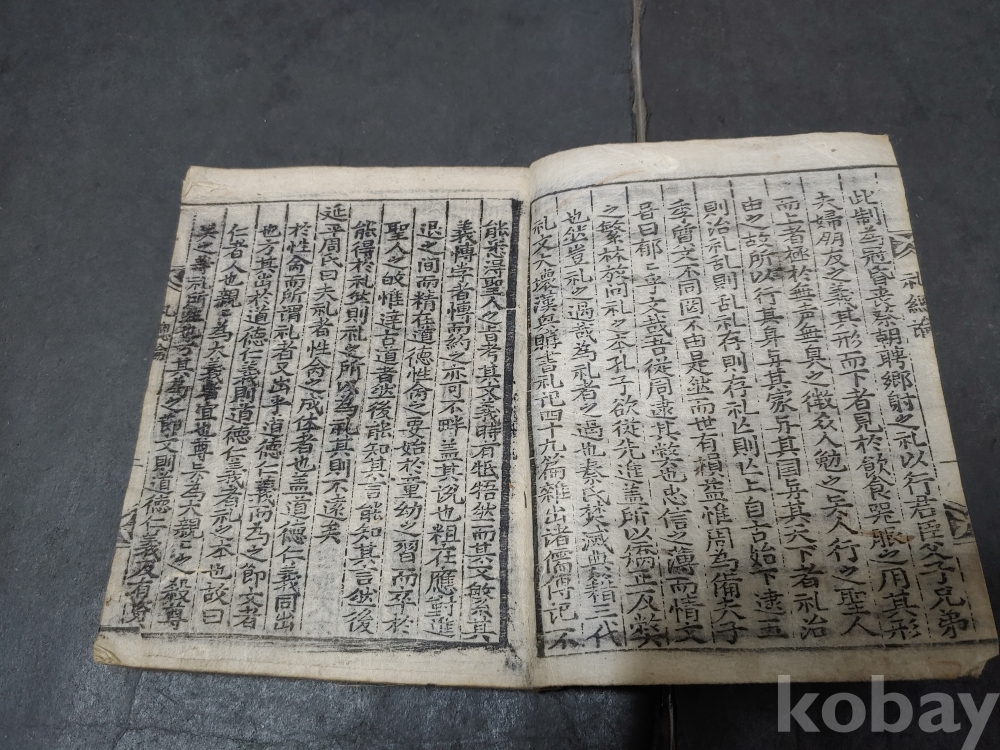 礼總論
此制為冠昏喪祭朝聘鄕射之礼以行君臣父子兄弟
夫婦朋友之義其形而下者見於飮食器服之用其形
而上者極於無声無臭之微众人勉之贤人行之聖人
由之故所以行其身与其家与其国与其天下者礼治
則治礼乱則乱礼存則存礼亡則亡上自古始下逮五
季質文不同罔不由是然而世有損益惟周為備夫子
曰郁〻乎文哉吾從周逮其弊也忠信之薄而情文
之繁林放问礼之本孔子欲從先進盖所以矯正反弊
也然豈礼之過哉為礼者之過也秦氏焚滅典籍三代
礼文大壞漢兴購書礼记四十九篇雜出諸儒傳记不
能悉得聖人之旨考其文義時有牴牾然而其文繁其
義博学者博而約之亦可不畔盖其说也粗在應對進
退之间而精在道德性命之要始於童幼之習而卒於
聖人之故惟達古道者然後能知其言能知其言然後
能得於礼然則礼之所以為礼其則不遠矣
延平周氏曰夫礼者性命之成体者也盖道德仁義同出
於性命而所谓礼者又出乎道德仁義而為之節文者
也方其出於道德仁義則道德仁義者礼之本也故曰
仁者人也親〻為大義者宜也尊贤為大親〻之殺尊
贤之等礼所生也方其為之節文則道德仁義反有
礼總論
kobay